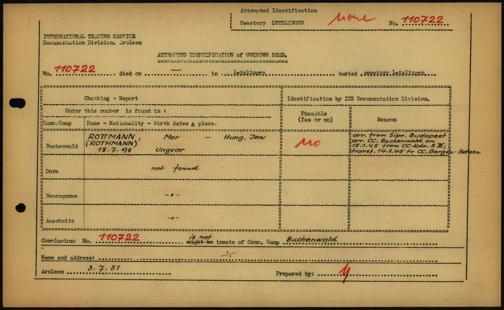 Attempted Identification
Cemetery LETZLINGEN None No. 110722
INTERNATIONAL TRACING SERVICE
Documentation Division, Arolsen
ATTEMPTED IDENTIFICATION of UNKNOWN DEAD.
No. 110722 died on — in Letzlingen buried cemetery Letzlingen
Checking - Report
Identification by ITS Documentation Division.
Under this number is found in:
Conc.Camp Name - Nationality - Birth Dates & place.
Possible (Yes or no)
Reason
Buchenwald
ROTTMANN, Mor — Hung. Jew
(ROTHMANN)
18.7.98 Ungvar
No
arr. from Sipo. Budapest
arr. CC. Buchenwald on
transf. 14.2.45 to CC. Bergen-Belsen
Dora not found
Neuengamme -"-
Auschwitz -"-
Conclusion: No. 110722 is not might be inmate of Conc. Camp Buchenwald
Name and address: -/-
Arolsen 3.7.51 Prepared by: